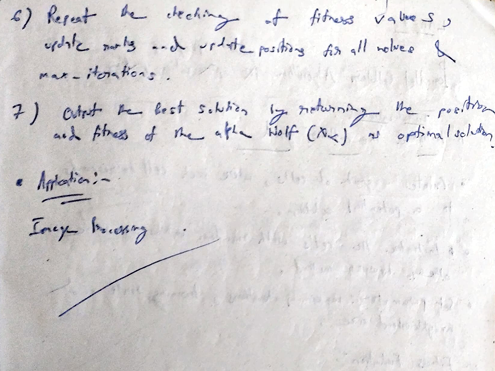 6) Repeat the checking of fitness values,
update ranks and update positions for all wolves &
max-iterations.
7) Output the best solution by returning the position
and fitness of the alpha wolf (Xα) as optimal solution.
• Application:-
Image Processing